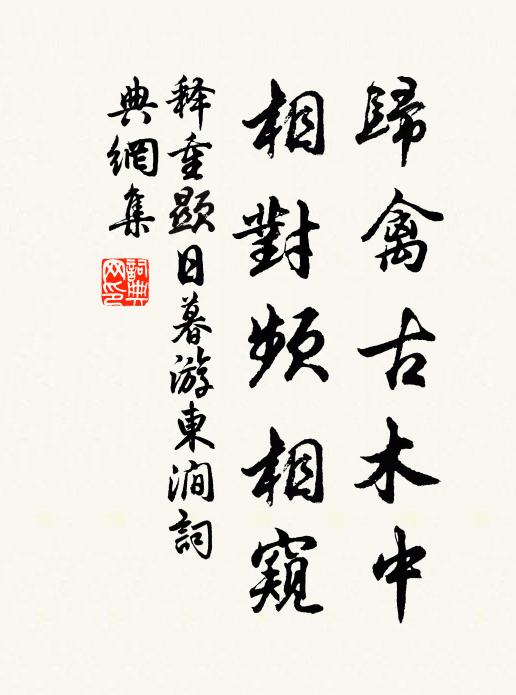 歸禽古木中
相對頻相窺
释重顯日暮游東澗詞
典網集
詞典
网印